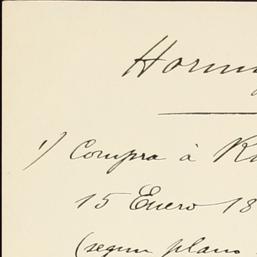 Horm
1) Compra à R
15 Enero 18
(segun plano